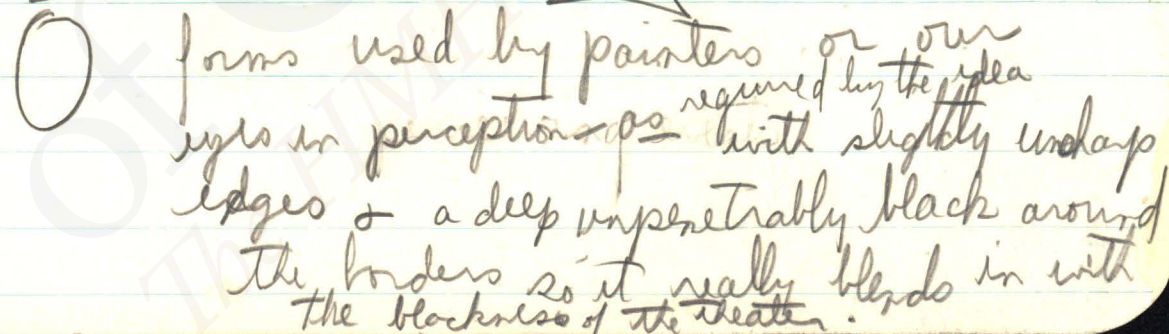 O forms used by painters or our
required by the idea
eyes in perception - as with slightly unsharp
edges & a deep unpenetrably black around
the borders so it really blends in with
the blackness of the theater.